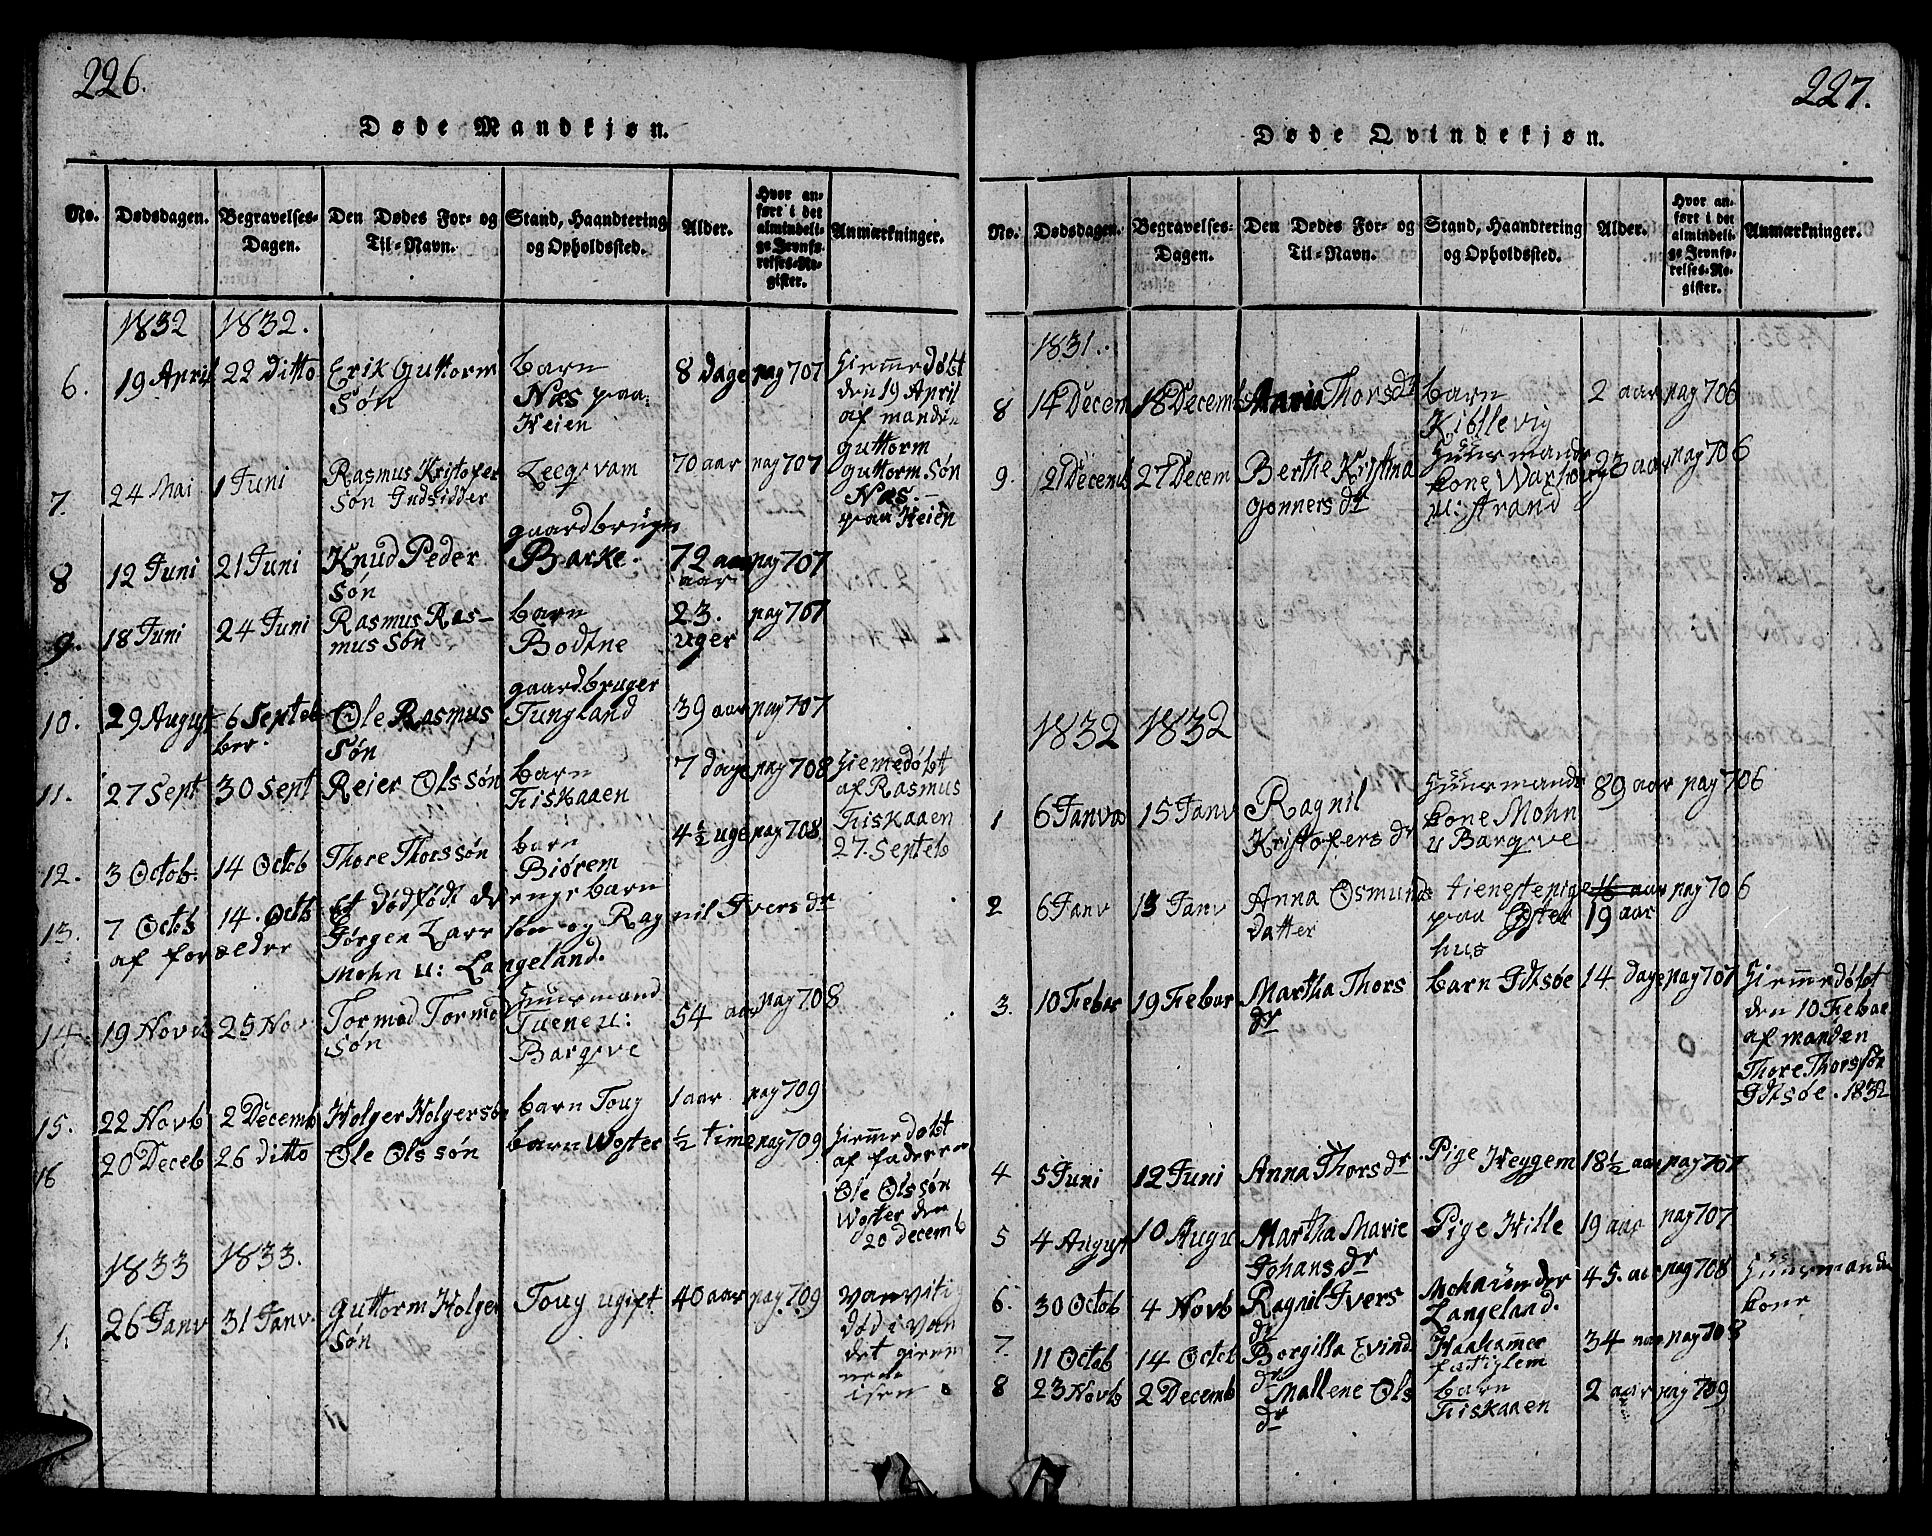 226.
Døde Mandkjøn.
No. Dødsdagen. Begravelses-Dagen. Den Dødes For- og Til-Navn. Stand, Haandtering og Opholdssted. Alder. Hvor anført i det almindelige Jevnførelses-Register. Anmærkninger.
1832 1832.
6. 19 April 22 Ditto Erik Guttorm barn 8 Dage pag 707 Hiemedøbt
Søn Næs paa den 19 April
Heien af manden
guttorm
7. 24 Mai 1 Juni Rasmus Kristofer Leegsvam 70 aar pag 707 guttorm Søn
Søn Indsidder Næs.
paa Heien
gaardbruger
8 12 Juni 21 Juni Knud Peder Barke. 72 aar pag 707
Søn aar
9. 18 Juni 24 Juni Rasmus Ras- barn 23. pag 707
mus Søn Bodtne uger
gaardbruger
10. 29 August 6 Septeb Ole Rasmus Tungland 39 aar pag 707
ber. Søn
11. 27 Sept 30 Sept Reier Ols søn barn 7 dage pag 708 Hiemedøbt
Fiskaaen af Rasmus
Fiskaaen
12. 3 Octob 14 Octob Thore Thorssøn barn 4½ uge pag 708 27. Septeb
Biørem
13. 7 Octob 14. Octb Et dødfødt drenge barn
af forældre Jørgen Lars søn og Ragnil Ivers dr
Mohn u: Langeland.
14. 19 Novb 25 Nov Tormod Tormod Huusmand 54 aar pag 708
Søn Tuene u:
Barqve
15. 22 Novb 2 Decemb Holger Holgersøn barn Toug 1 aar pag 709
16 20 Deceb 26 ditto Ole Ols søn barn Woster ½ time pag 709 Hiemedøbt
af faderen
Ole Olssøn
Woster den
20 decemb
1833 1833.
1. 26 Janv 31 Janv. Guttorm Holger Toug ugift 40 aar pag 709 vanvitig
Søn Død i van
det giem
nem
isen.
227.
Døde Qvindekjøn.
No. Dødsdagen. Begravelses-Dagen. Den Dødes For- og Til-Navn. Stand, Haandtering og Opholdssted. Alder. Hvor anført i det almindelige Jevnførelses-Register. Anmærkninger.
1831.
8 14 Decem 18 Decemb Thors dr barn 2 aar pag 706
Kiøllevig
9. 21 Decemb 27 Decem Berthe Kristina Huusmands 23 aar pag 706
Gonners dr kone
u: Strand
1832 1832
1 6 Janva 15 Janv Ragnil Huusmands 89 aar pag 706
Kristofers dr kone Mohn
u Barqve
2 6 Janv 13 Janv Anna Osmunds tienestepige 16 aar pag 706
datter paa Øster 19 aar
hus
3. 10 Febar 19 Febar Martha Thors barn Idtsøe 14 dage pag 707 Hiemedøbt
dr den 10 Febar
af manden
Thore Thorssøn
Idtsøe. 1832
4 5 Juni 12 Juni Anna Thors dr Pige Heggem 18½ aar pag 707
5 4 August 10 Augu Martha Marie Pige Hille 19 aar pag 707
Johans dr
6. 30 Octob 4 Novb Ragnil Ivers Moh under 45. aar pag 708 Huusmands
dr Langeland. kone
7. 11 Octob 14 Octob Borgilla Evind Haahamer 34 aar pag 708
dr fattiglem
8 23 Novb 2 Decemb Mallene Ols barn 2 aar pag 709
dr Fiskaaen